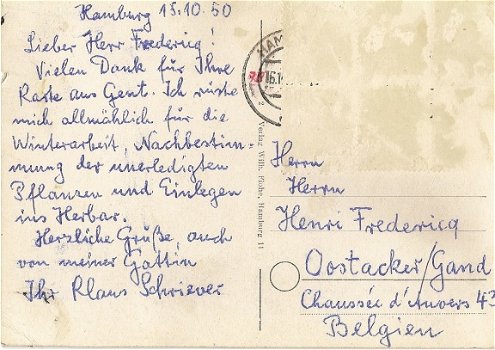 Hamburg 15.10.50
Lieber Herr Fredericq!
Vielen Dank für Ihre
Karte aus Gent. Ich rüste
mich allmählich für die
Winterarbeit, Nachbestim-
mung der unerledigten
Pflanzen und Einlegen
ins Herbar.
Herzliche Grüße, auch
von meiner Gattin
Ihr Klaus Schriever
HAM
Verlag Wilh. Plohe, Hamburg 11
Herrn
Herrn
Henri Fredericq
Oostacker/Gand
Chaussée d'Anvers 43
Belgien